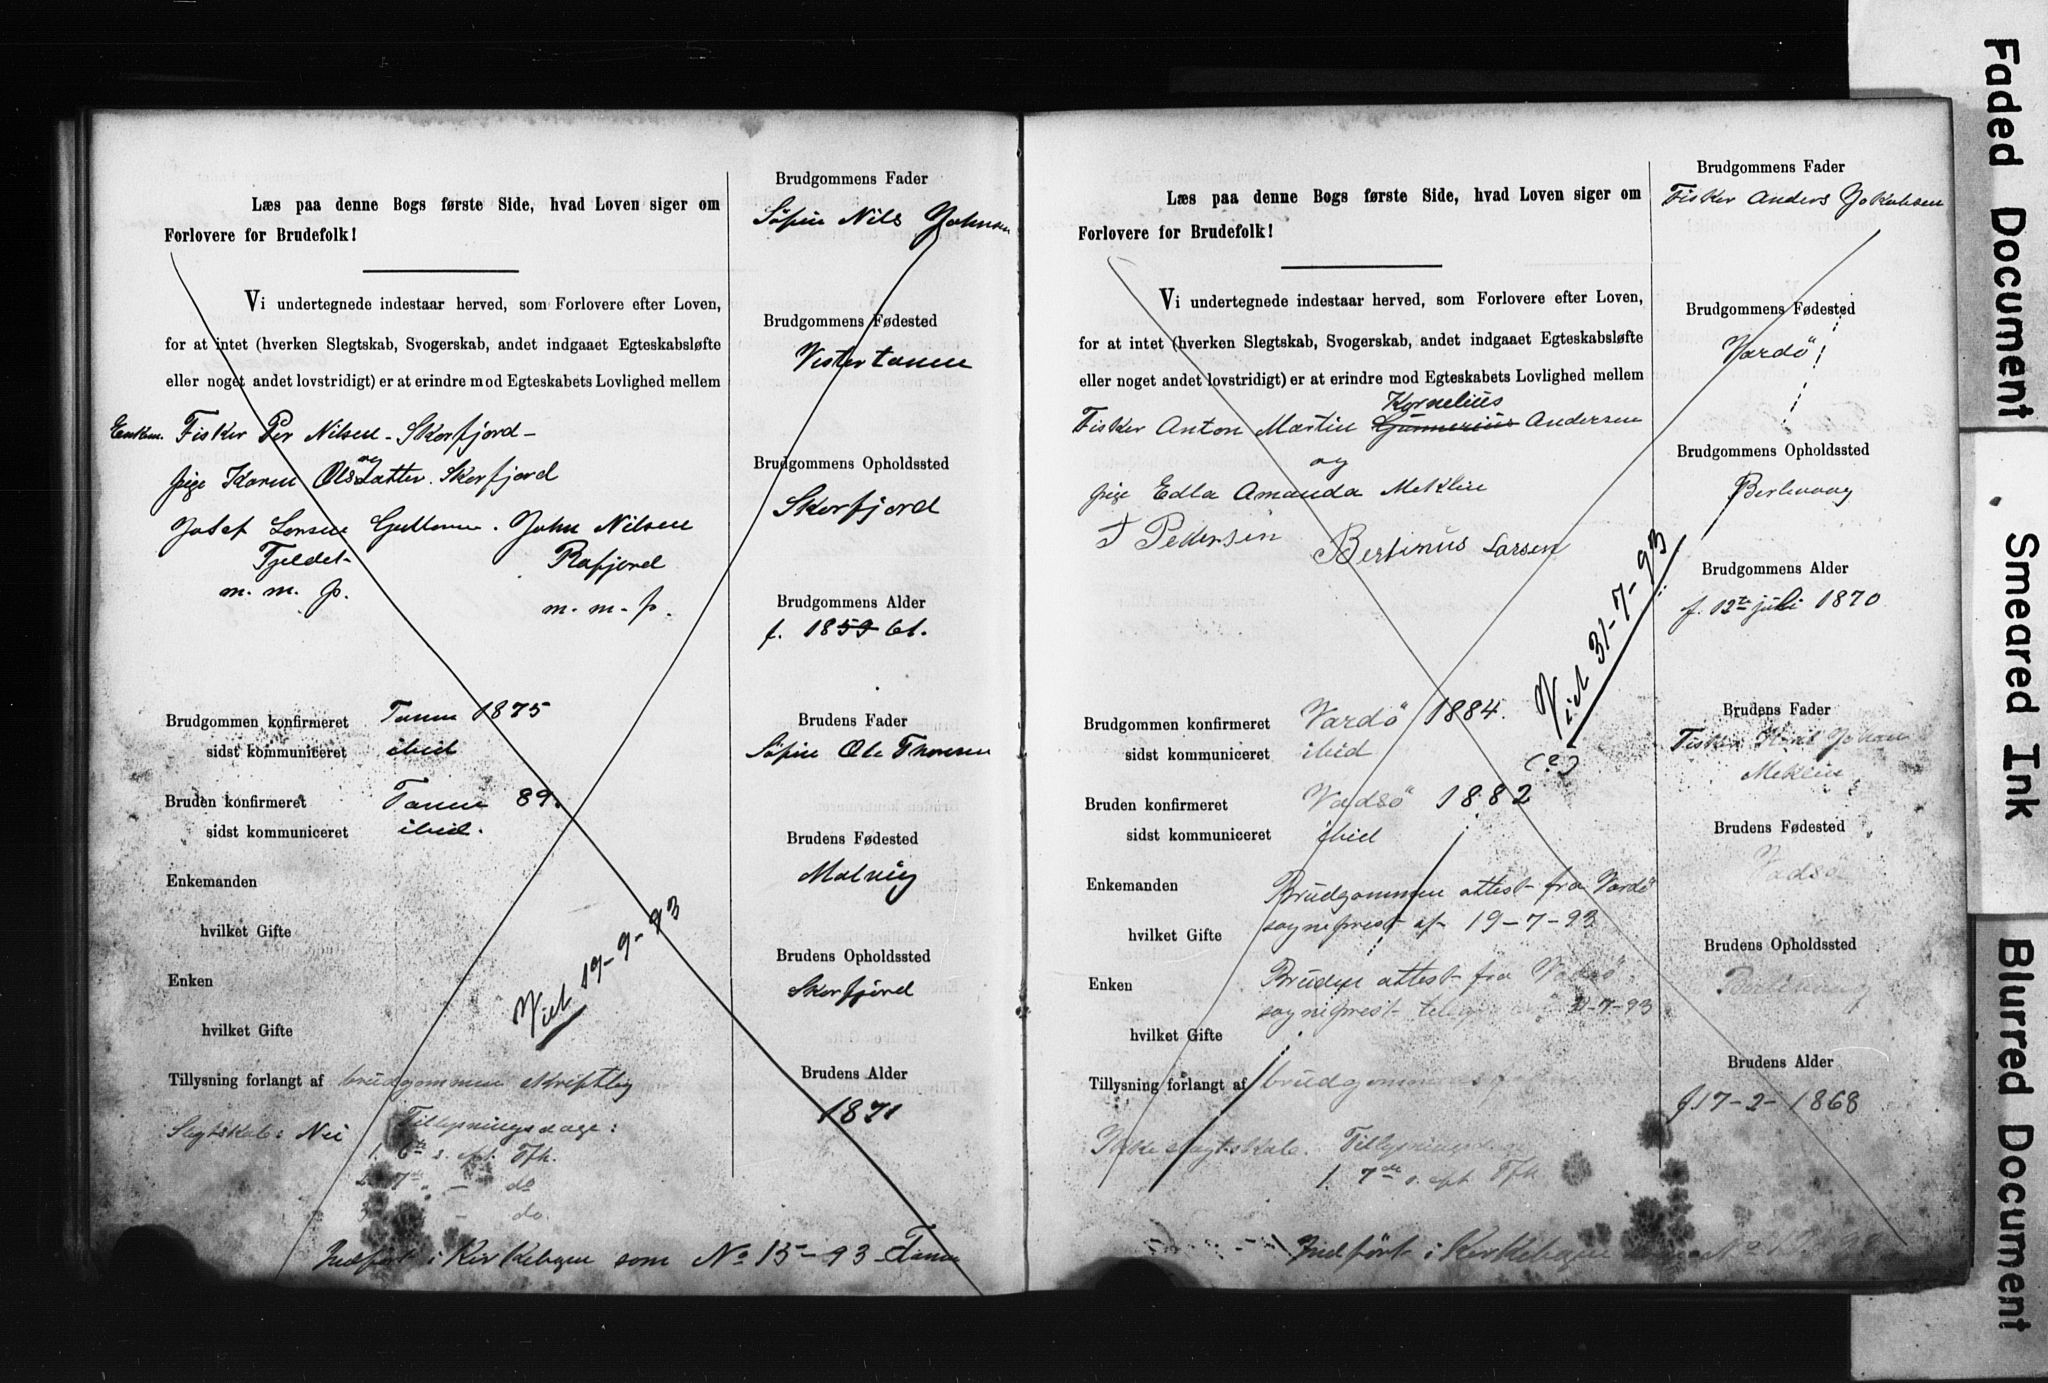 Læs paa denne Bogs første Side, hvad Loven siger om
Forlovere for Brudefolk!
Vi undertegnede indestaar herved, som Forlovere efter Loven,
for at intet (hverken Slegtskab, Svogerskab, andet indgaaet Egteskabsløfte
eller noget andet lovstridigt) er at erindre mod Egteskabets Lovlighed mellem
Enkem. Fisker Per Nilsen - Skorfjord -
og
pige Karen Olsdatter. Skorfjord
John Nilsen
Fjeldet
Rafjord
m. m. p.
m. m. p.
Brudgommen konfirmeret Tanen 1875
sidst kommuniceret ibid
Bruden konfirmeret Tanen 89.
sidst kommuniceret ibid.
Enkemanden
hvilket Gifte
Enken
hvilket Gifte
Viet 19-9-93
Tillysning forlangt af brudgommen skriftlig
Slegtskab: Nei Tillysningsdage:
1. 6te s. ept. Tfk.
2. 7de " - do
3. - do.
Indført i Kirkebogen som No 15-93 Tanen
Brudgommens Fader
Nils Johnsen
Brudgommens Fødested
Vestertanen
Brudgommens Opholdssted
Skorfjord
Brudgommens Alder
f. 1859 61.
Brudens Fader
Ole Thomsen
Brudens Fødested
Malvig
Brudens Opholdssted
Skorfjord
Brudens Alder
1871
Læs paa denne Bogs første Side, hvad Loven siger om
Forlovere for Brudefolk!
Vi undertegnede indestaar herved, som Forlovere efter Loven,
for at intet (hverken Slegtskab, Svogerskab, andet indgaaet Egteskabsløfte
eller noget andet lovstridigt) er at erindre mod Egteskabets Lovlighed mellem
Kornelius
Fisker Anton Martin Gunnerius Andersen
og
pige Edla Amanda Meklin
Pedersen Bertinus Larsen
Viet 31-7-93
(?)
Brudgommen konfirmeret Vardö 1884.
sidst kommuniceret ibid
Bruden konfirmeret Vadsö 1882
sidst kommuniceret ibid
Enkemanden Brudgommen attest fra Vardö
sogneprest af 19-7-93
hvilket Gifte
Enken Bruden attest fra Vadsö
sogneprest
hvilket Gifte
Tillysning forlangt af brudgommen
Ikke slegtskab.
1. 7de s. ept. Tfk.
Indført i Kirkebogen
Brudgommens Fader
Fisker Anders Jokobsen
Brudgommens Fødested
Vardö
Brudgommens Opholdssted
Berlevaag
Brudgommens Alder
f. 12te juli 1870
Brudens Fader
Fisker Johan
Meklin
Brudens Fødested
Vadsö
Brudens Opholdssted
Berlevaag
Brudens Alder
f 17-2-1868
Faded Document
Smeared Ink
Blurred Document